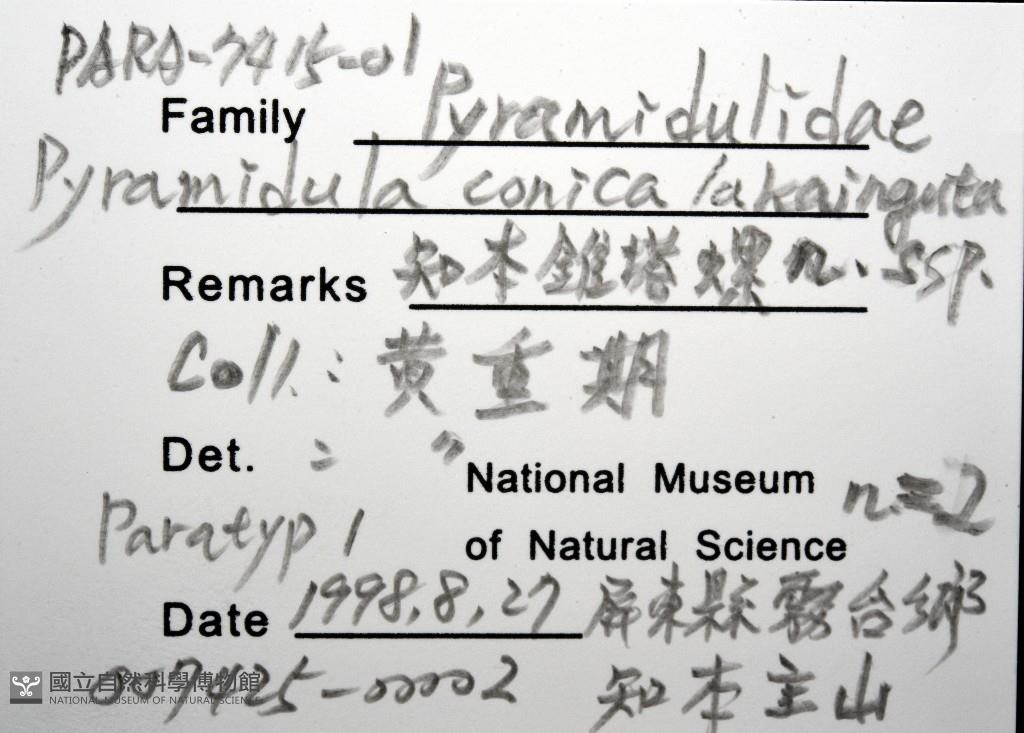 PARA-7415-01
Family Pyramidulidae
Pyramidula conica lakainguta
Remarks 知本錐塔螺 n. ssp.
Coll.: 黄重期
Det. : 〃
National Museum n=2
Paratyp 1
of Natural Science
Date 1998.8.27 屏東縣霧台鄉
007415-00002 知本主山
國立自然科學博物館
NATIONAL MUSEUM OF NATURAL SCIENCE